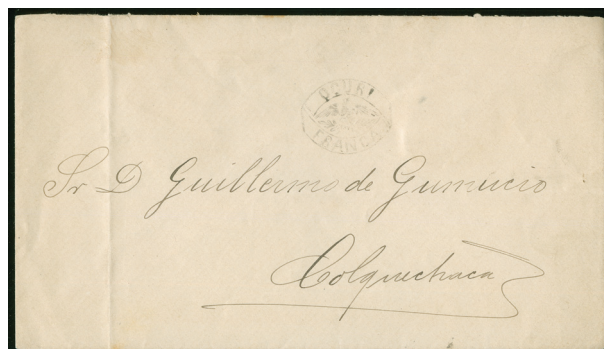 FRANCA
Sr D Guillermo de Gumucio
Colquechaca